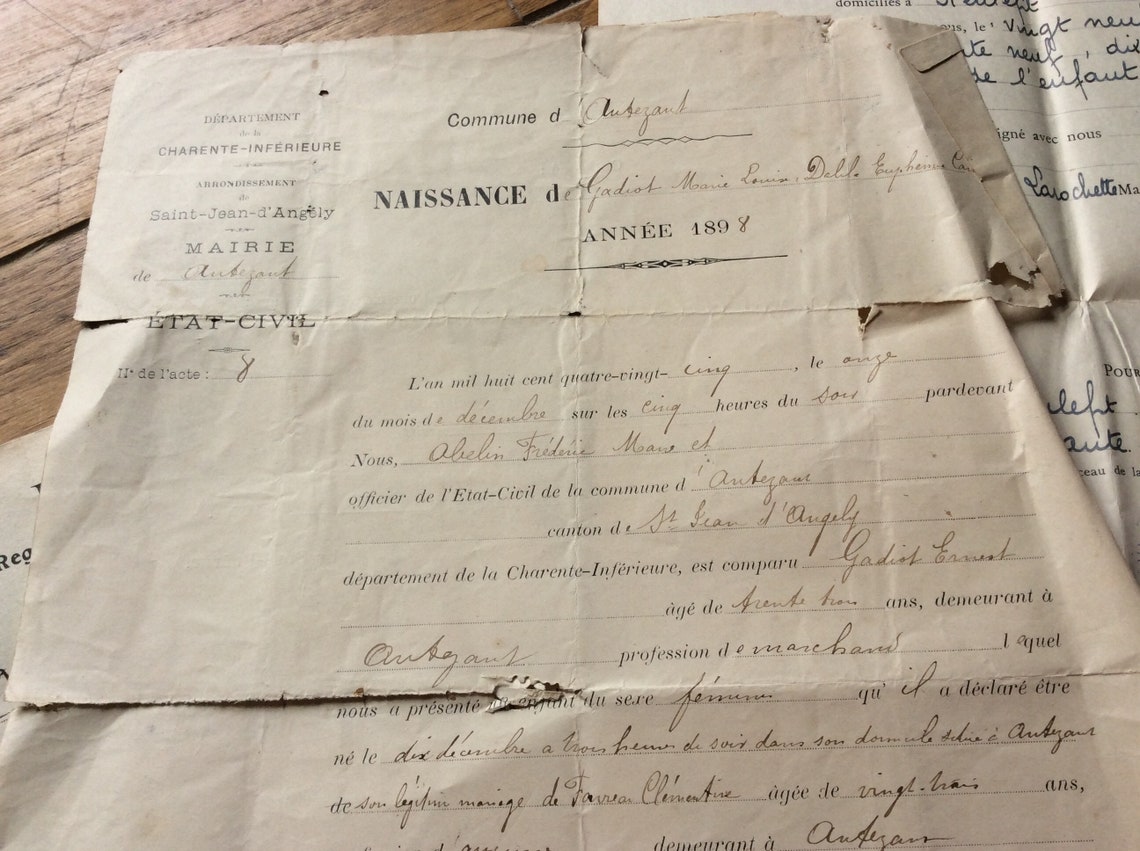 DÉPARTEMENT
de la
CHARENTE-INFÉRIEURE
ARRONDISSEMENT
de
Saint-Jean-d'Angély
MAIRIE
de Antezant
ÉTAT-CIVIL
N° de l'acte : 8
Commune d'Antezant
NAISSANCE de Gadiot Marie Louise
ANNÉE 1898
L'an mil huit cent quatre-vingt-cinq, le onze
du mois de décembre sur les cinq heures du soir pardevant
Nous, Abelin Frédéric Maire et
officier de l'Etat-Civil de la commune d'Antezant
canton de St Jean d'Angely
département de la Charente-Inférieure, est comparu Gadiot Ernest
âgé de trente trois ans, demeurant à
Antezant profession de marchand lequel
nous a présenté un enfant du sexe féminin qu'il a déclaré être
né le dix décembre a trois heures du soir dans son domicile situé à Antezant
de son légitime mariage de Favreau Clémentine âgée de vingt-trois ans,
demeurant à Antezant
domiciliés à
le Vingt neuf
neuf, dix
de l'enfant
signé avec nous
Larochette
POUR
Reg